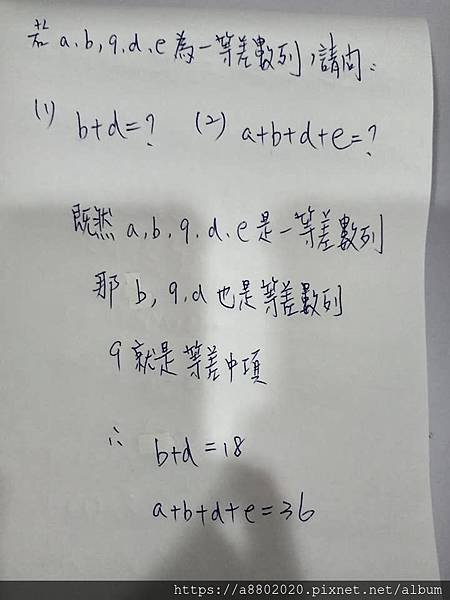 若 a、b、9、d、e 為一等差數列，請問：
(1) b+d=? (2) a+b+d+e=?
既然 a, b, 9, d, e 是一等差數列
那 b, 9, d 也是等差數列
9 就是等差中項
∴ b+d=18
a+b+d+e=36
https://a8802020.pixnet.net/album